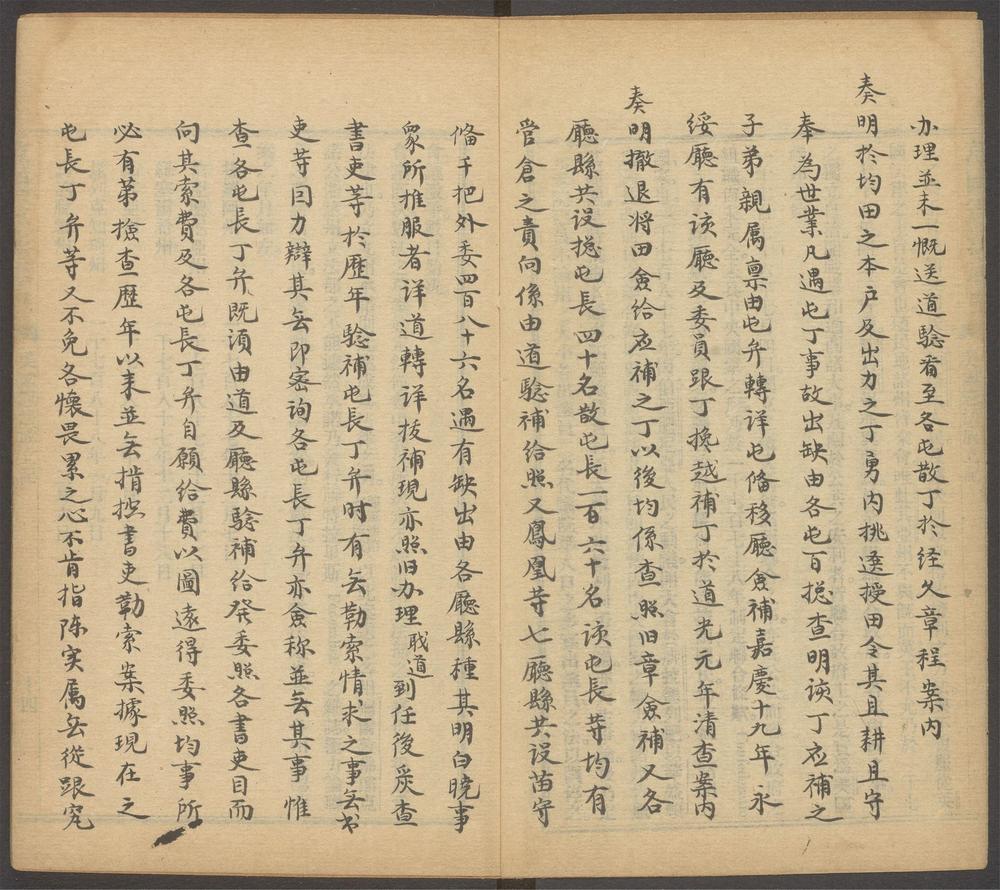 办理並未一慨送道驗看至各屯散丁於经久章程案内
奏明於均田之本户及出力之丁勇内挑選授田令其且耕且守
奉為世業凡遇屯丁事故出缺由各屯百摠查明该丁应補之
子弟親属禀由屯弁轉详屯俻移廳佥補嘉慶十九年永
綏廳有该廳及委員跟丁挽越補丁於道光元年清查案内
奏明撤退将田佥给应補之丁以後均係查照旧章佥補又各
廳縣共设摠屯長四十名散屯長一百六十名该屯長䓁均有
管倉之責向係由道驗補给照又鳳凰䓁七廳縣共设苗守
俻千把外委四百八十六名遇有缺出由各廳縣種其明白曉事
衆所推服者详道轉详拔補現亦照旧办理職道到任後炭查
書吏䓁於歷年驗補屯長丁弁时有无勒索情求之事无书
吏䓁囙力辯其无即密询各屯長丁弁亦佥称並无其事惟
查各屯長丁弁既須由道及廳縣驗補给發委照各書吏目而
向其索費及各屯長丁弁自願给費以圖遠得委照均事所
必有第撿查歷年以来並无揹㨿書吏勒索案據現在之
屯長丁弁䓁又不免各懷畏累之心不肯指陈实属无從跟究